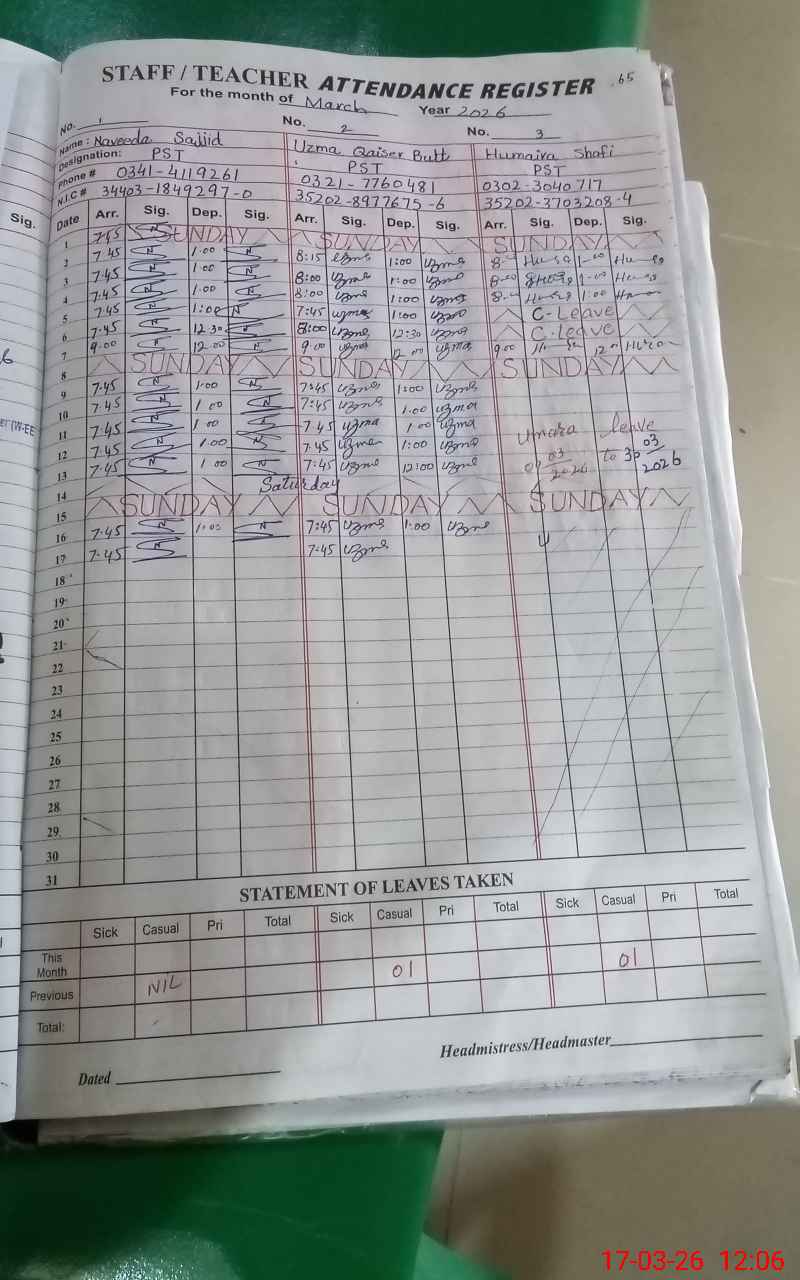 STAFF / TEACHER ATTENDANCE REGISTER .65
For the month of March Year 2026
No. 1 No. 2 No. 3
Name: Naveeda Sajjid Uzma Qaiser Butt Humaira Shafi
Designation: PST PST PST
Phone # 0341-4119261 0321-7760481 0302-3040717
N.I.C # 34403-1849297-0 35202-8977675-6 35202-3703208-4
Sig. Date Arr. Sig. Dep. Sig. Arr. Sig. Dep. Sig. Arr. Sig. Dep. Sig.
1 7:45 SUNDAY SUNDAY SUNDAY
2 7.45 1.00 8:15 Uzma 1:00 Uzma
3 7.45 1.00 8:00 Uzma 1:00 Uzma
4 7.45 1.00 8:00 Uzma 1:00 Uzma 1:00
5 7.45 1:00 7:45 Uzma 1:00 Uzma C-Leave
6 7.45 12.30 8:00 Uzma 12:30 Uzma C-Leave
7 9.00 12.00 9.00 Uzma 12.00 Uzma 9.00
8 SUNDAY SUNDAY SUNDAY
9 7.45 1.00 7:45 Uzma 1:00 Uzma
10 7.45 1.00 7:45 Uzma 1.00 Uzma
11 7.45 1.00 7.45 Uzma 1.00 Uzma Umara leave
12 7.45 1.00 7.45 Uzma 1:00 Uzma 03 2026 to 30 03 2026
13 7.45 1.00 7:45 Uzma 12:00 Uzma
14 Saturday
15 SUNDAY SUNDAY SUNDAY
16 7.45 1:00 7:45 Uzma 1:00 Uzma
17 7.45 7:45 Uzma
18
19
20
21
22
23
24
25
26
27
28
29
30
31
STATEMENT OF LEAVES TAKEN
Sick Casual Pri Total Sick Casual Pri Total Sick Casual Pri Total
This Month
Previous NIL 01 01
Total:
Dated Headmistress/Headmaster
17-03-26 12:06